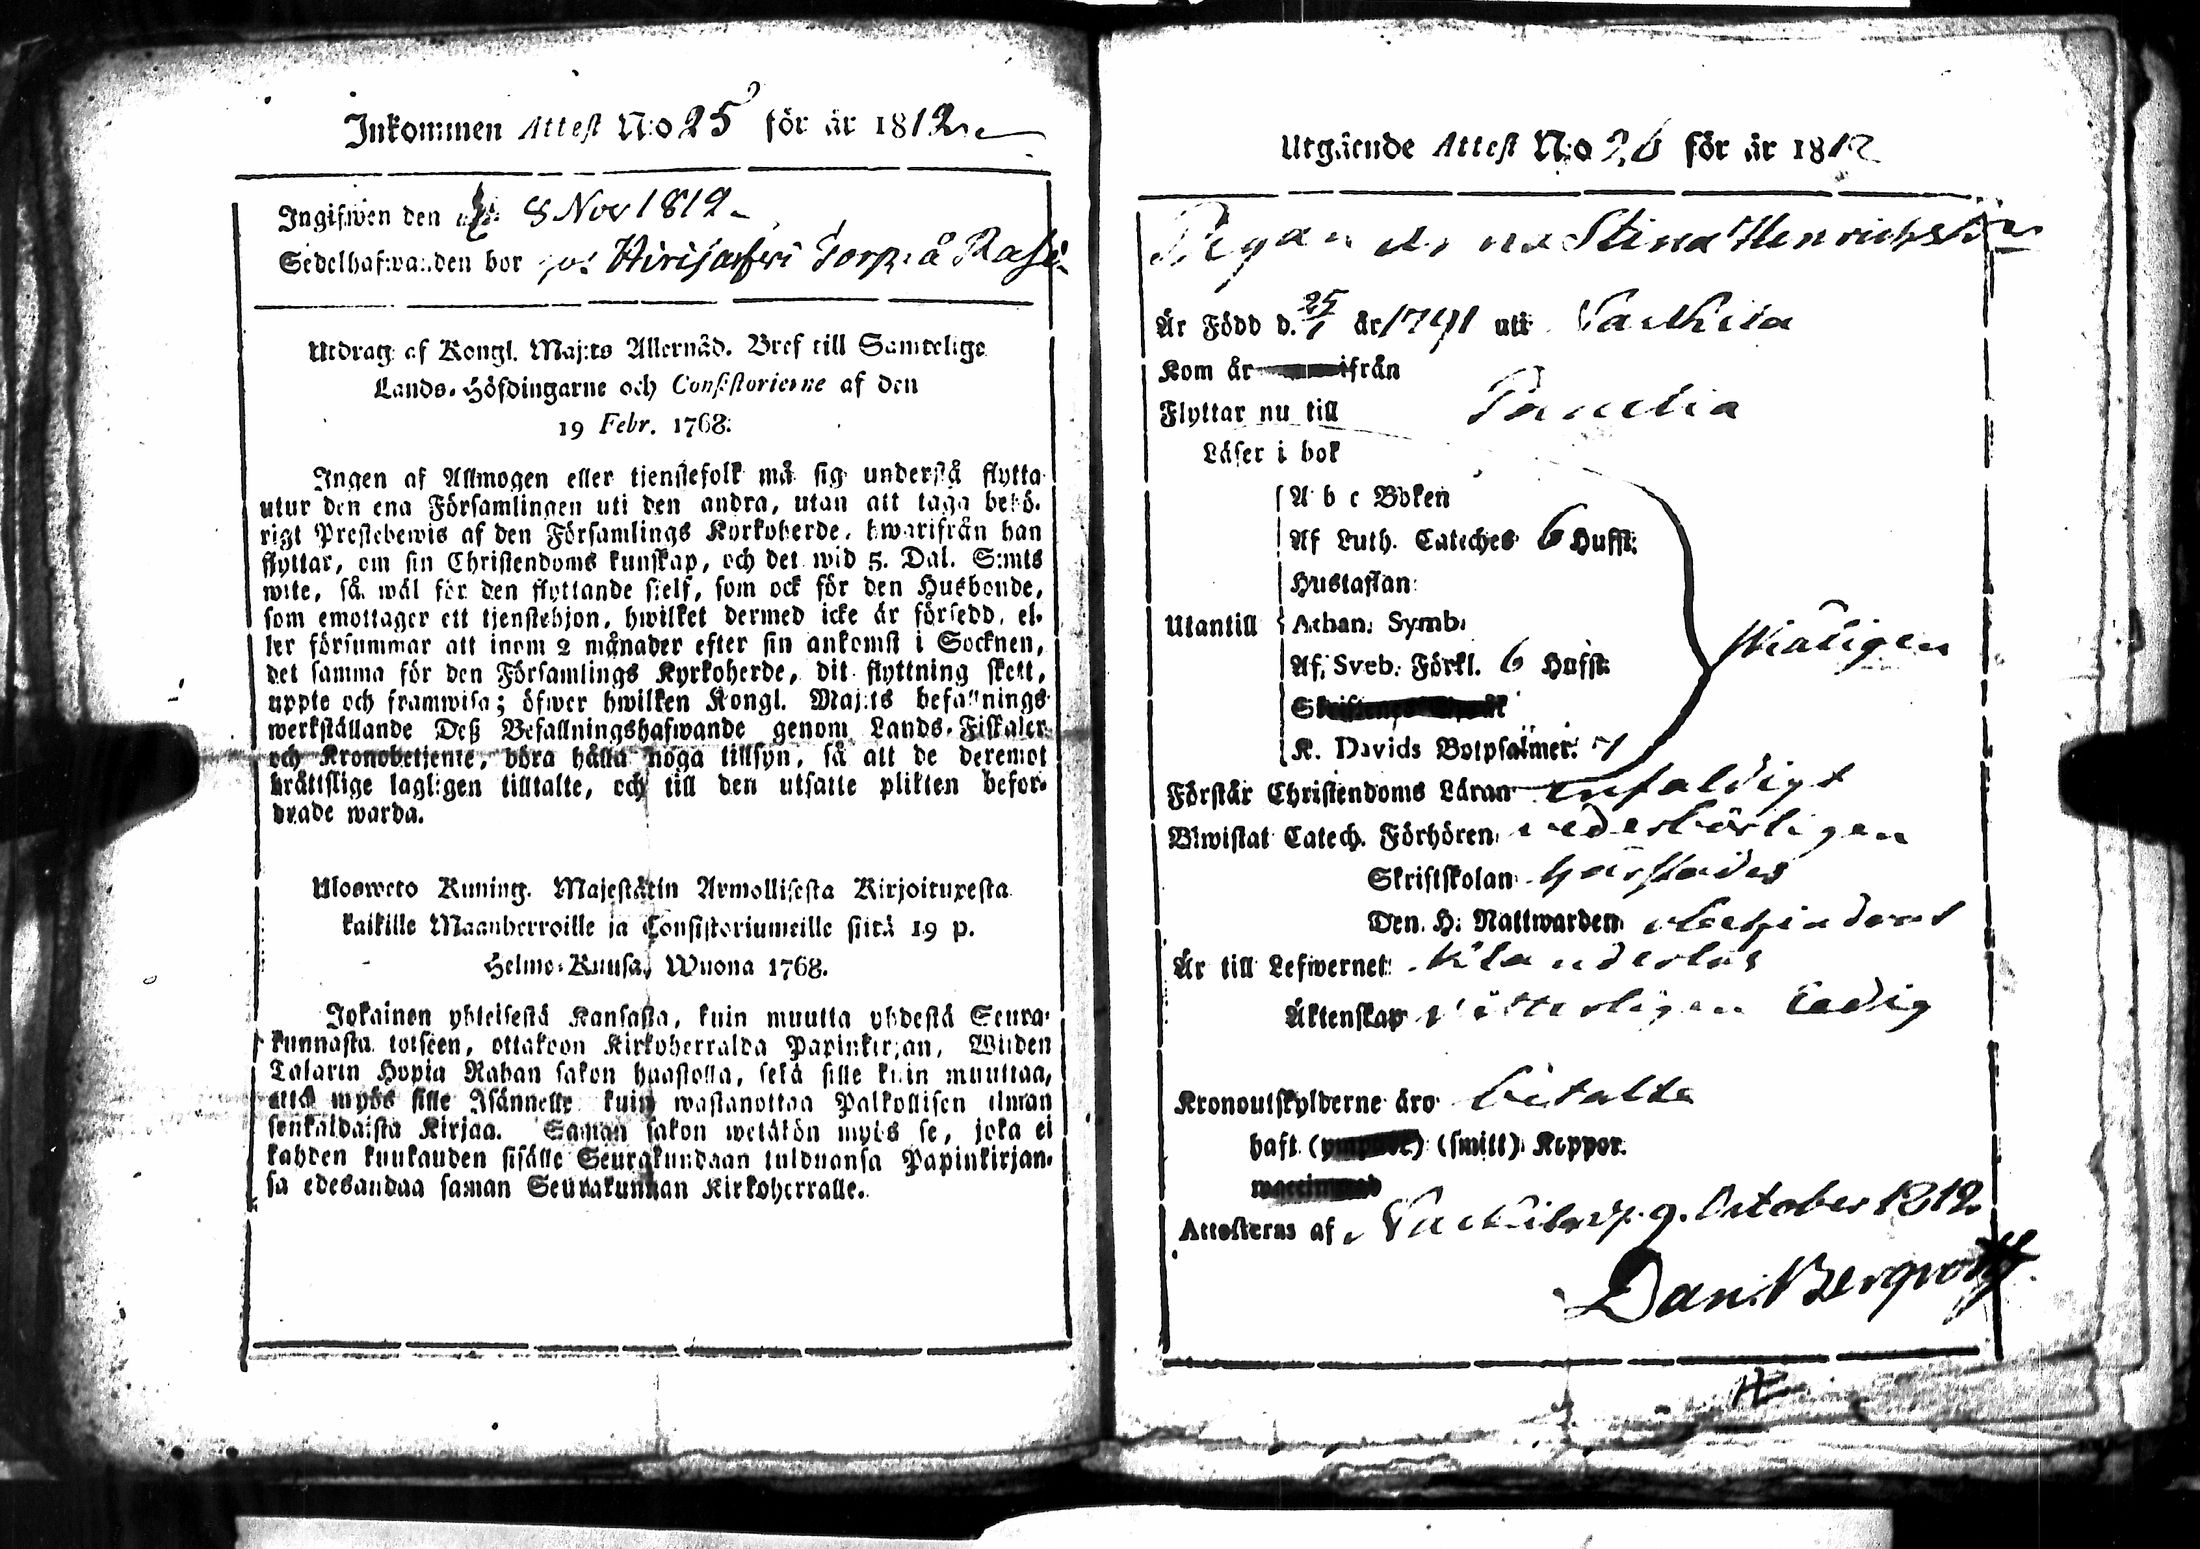 Inkommen Attest N:o 25 för år 1812
Ingifwen den 8 Nov 1812
Sedelhafwanden bor hos Torp å
Utdrag af Kongl. Maj:ts Allernåd. Bref till Samtelige
Lands-Höfdingarne och Consistorierne af den
19 Febr. 1768.
Ingen af Allmogen eller tjenstefolk må sig understå flytta
utur den ena Församlingen uti den andra, utan att taga behö-
rigt Prestebewis af den Församlings Kyrkoherde, hwarifrån han
flyttar, om sin Christendoms kunskap, och det wid 5. Dal. S:mts
wite, så wäl för den flyttande sjelf, som ock för den Husbonde,
som emottager ett tjenstehjon, hwilket dermed icke är försedd, el-
ler försummar att inom 2 månader efter sin ankomst i Socknen,
det samma för den Församlings Kyrkoherde, dit flyttning skett,
uppte och framwisa; öfwer hwilken Kongl. Maj:ts befallnings
werkställande Deß Befallningshafwande genom Lands-Fiskaler
och Kronobetjente, böra hålla noga tillsyn, så att de deremot
brättslige lagligen tilltalte, och till den utsatte plikten befor-
drade warda.
Ulosweto Kuning. Majestätin Armollisesta Kirjoituxesta
kaikille Maanherroille ja Consistoriumeille siitä 19 p.
Helme-Kuusa, Wuona 1768.
Jokainen yhteisestä Kansasta, kuin muutta yhdestä Seura-
kunnasta toiseen, ottakoon Kirkoherralda Papinkirjan, Wiiden
Talarin Hopia Rahan sakon haastolla, sekä sille kuin muuttaa,
että myös sille Isännelle kuin wastanottaa Palkollisen ilman
senkaldaista Kirjaa. Saman sakon wetäkön myös se, joka ei
kahden kuukauden sisälle Seurakundaan tulduansa Papinkirjan-
sa edesandaa saman Seurakunnan Kirkoherralle.
Utgående Attest N:o 26 för år 1812
Pigan Anna Stina Henrichsdr
Är Född d. 25/1 år 1791 uti
Kom år ifrån
Flyttar nu till Panelia
Läser i bok
A b c Boken
Af Luth. Cateches 6 Hufst:
Hustaflan:
Utantill Athan: Symb.
Af. Sveb. Förkl. 6 Hufst:
K. Davids Botpsalmer: 7
Förstår Christendoms Läran enfaldigt
Biwistat Catech. Förhören wederbörligen
Skriftskolan
Den. H. Nattwarden
Är till Lefwernet
Äktenskap ledig
Kronoutskylderne äro betalte
haft (smitt) Koppor.
Attesteras af 9. October 1812
Dan. Bergroth